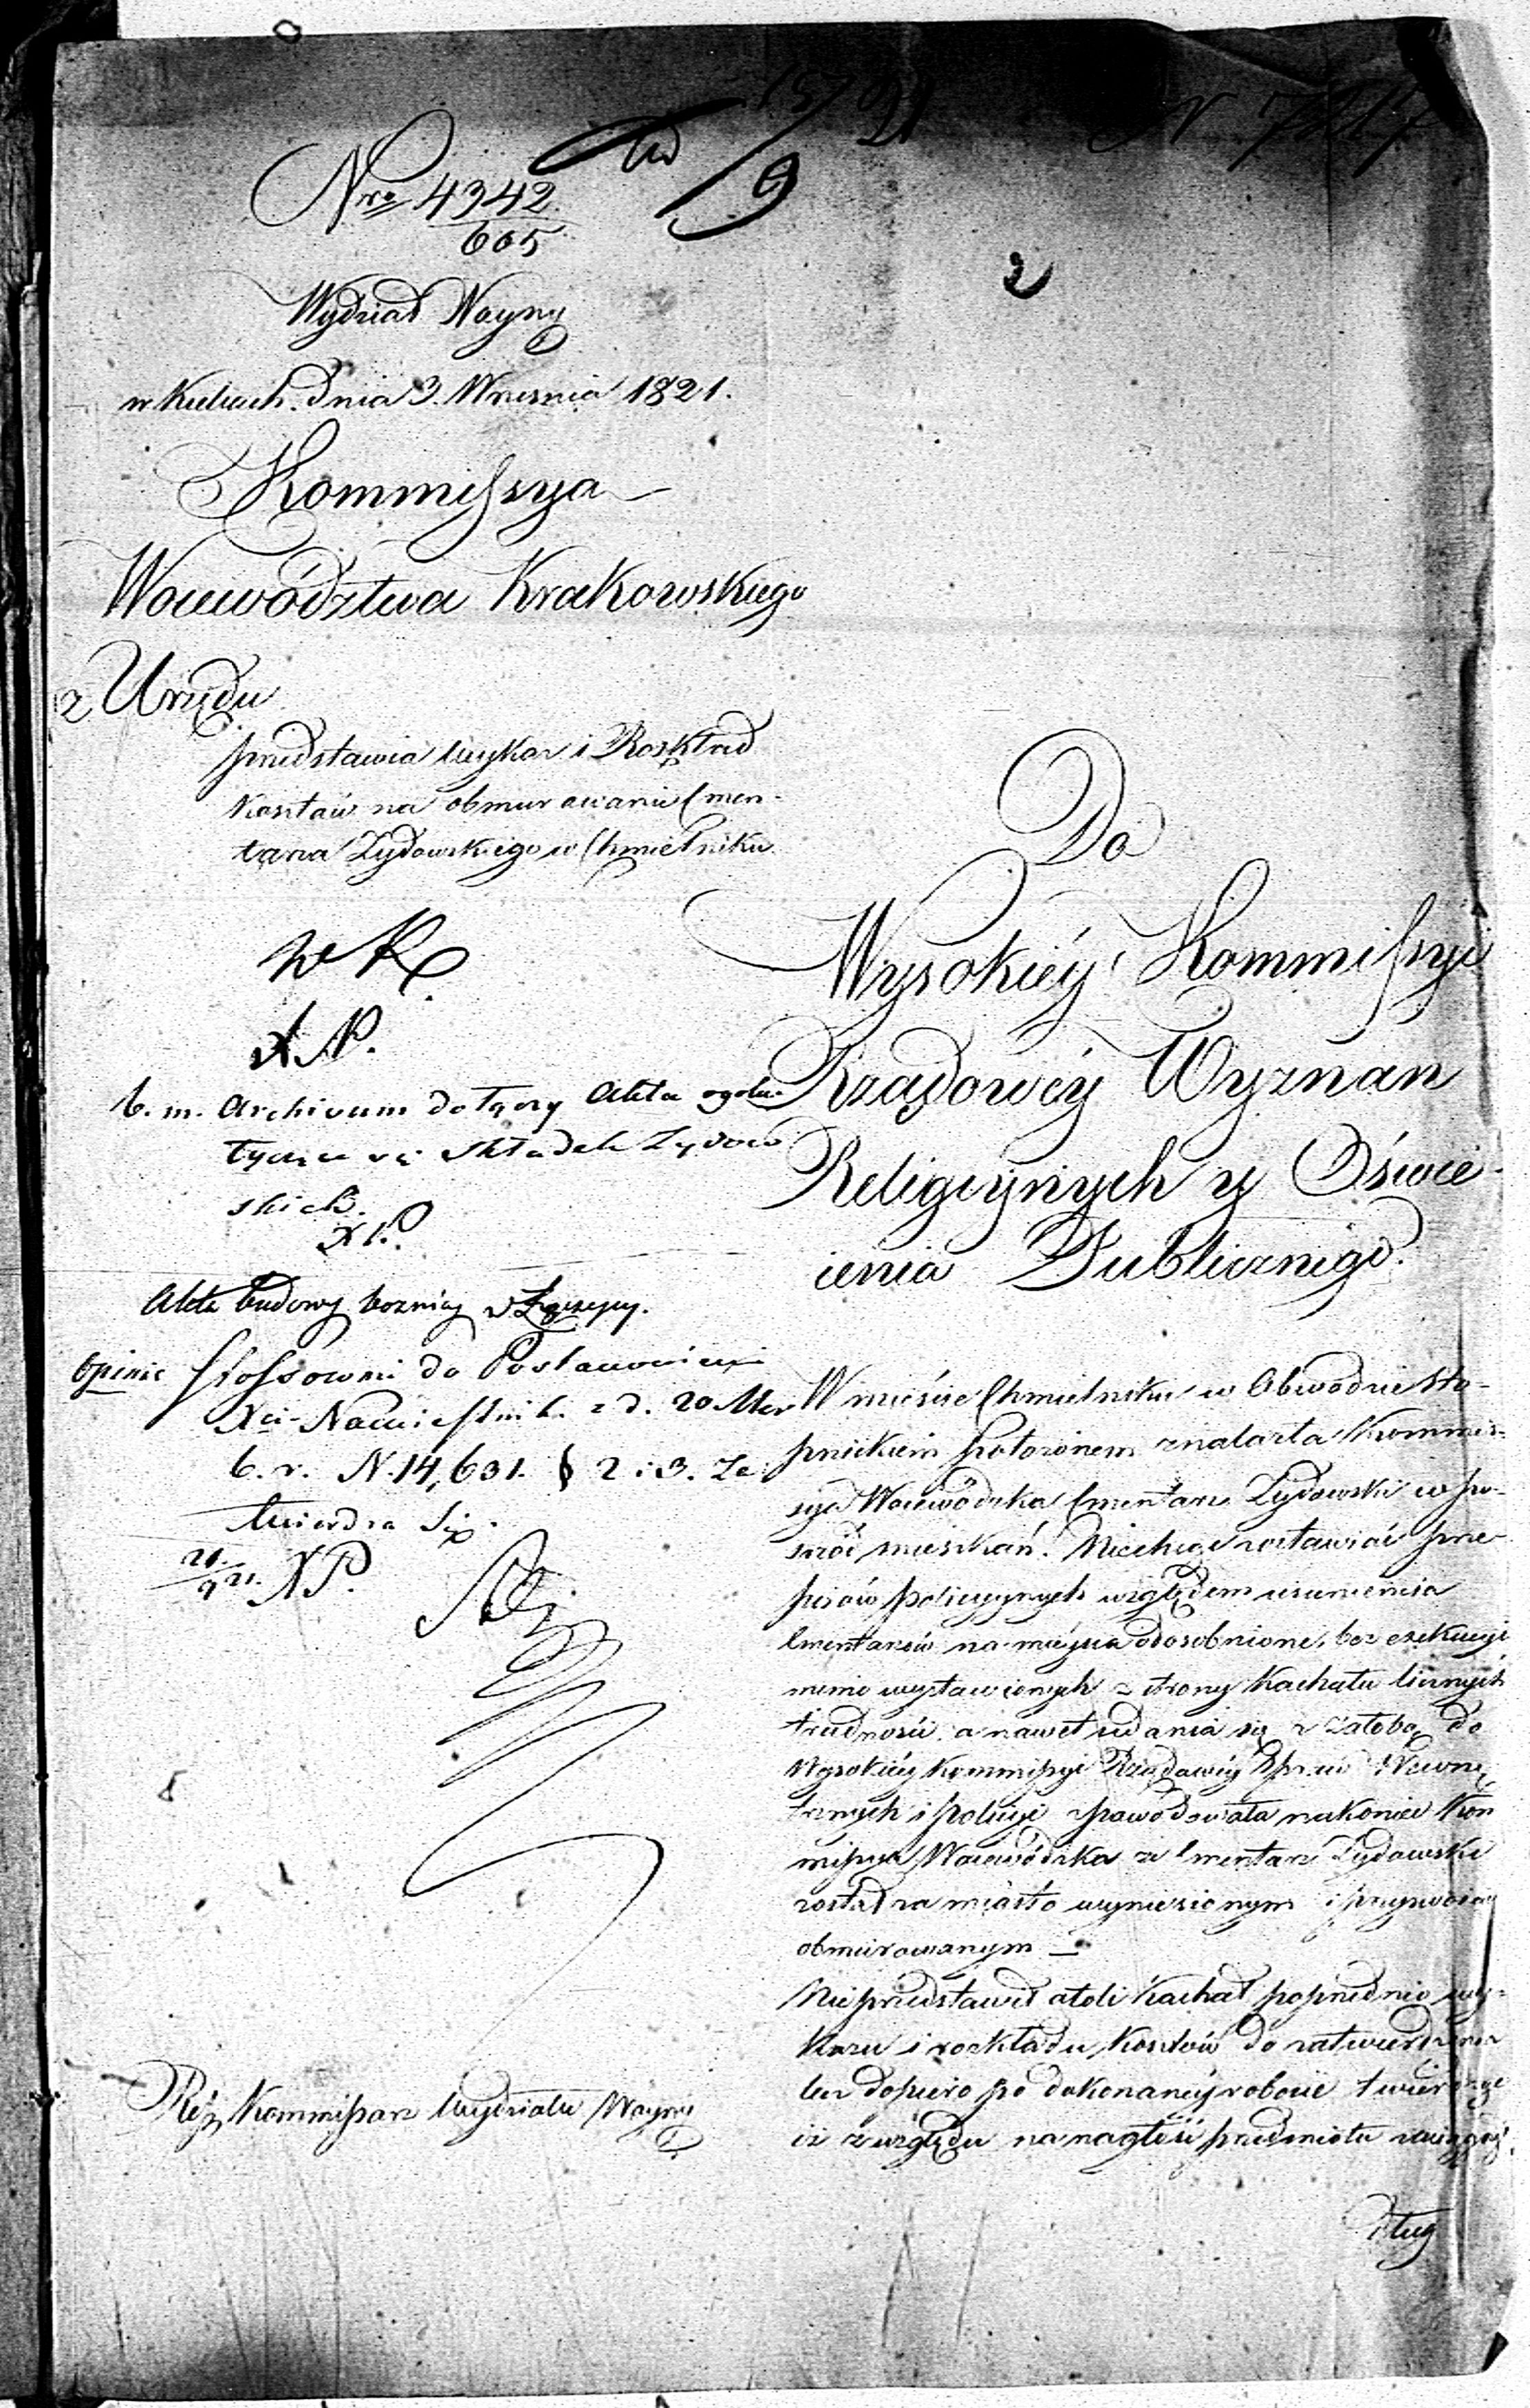 15/9 21
N 7217
Nro 4342
605
2
Wydział Woyny
w Kielcach dnia 3. Wrzesnia 1821.
Kommissya
Woiewództwa Krakowskiego
z Urzędu
przedstawia wykaz i Rozkład
kosztów na obmurowanie Cmen-
tarza Zydowskiego w Chmielniku
Do
Wysokiéy Kommissyi
Rządowéy Wyznań
Religiynych y Oświe-
cenia Publicznego.
b. m. Archivum dołączy Akta ogóln.
tyczące się składek Zydow
skich.
Akta budowy boznicy w
Opinie stossownie do Postanowienia
Xcia Namiestnika z d. 20 Mar
b. r. N. 14,631. § 2 i 3. Za
twierdza się.
21/9 21. XP.
W mieście Chmielniku w Obwodzie Sto-
pnickim położonem znalazła Kommis-
sya Woiewódzka Cmentarz Zydowski w po-
śród mieszkań. Niechcąc zostawiać prze-
pisów policyynych względem usunienia
Cmentarzów na mieysca odosobnione, bez exekucyi
mimo wystawionych z strony Kachału licznych
trudności a nawet udania się z żałobą do
Wysokiéy Kommissyi Rządowéy Spraw Wewnę-
trznych i Policyi spowodowała nakoniec Kom
missya Woiewódzka że Cmentarz Zydowski
został za miasto wyniesionym i przyzwoicie
obmurowanym —
Nieprzedstawił atoli Kachał poprzednio wy-
kazu i rozkładu kosztów do zatwierdzenia
lecz dopiero po dokonanéy robocie twierdząc
iż z względu na nagłość przedmiotu
dług
Réfz Kommissarz Wydziału Woyny